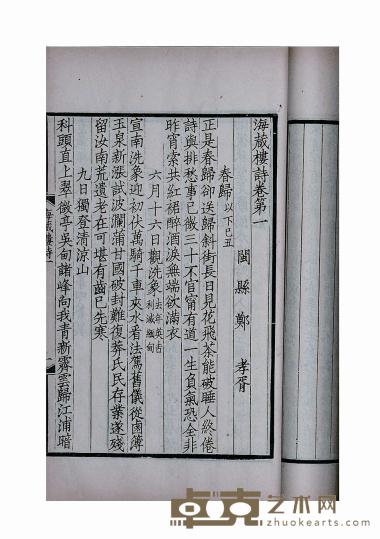 海藏樓詩卷第一
閩縣鄭孝胥
春歸以下己丑
正是春歸卻送歸斜街長日見花飛茶能破睡人終倦
詩與排愁事已微三十不官甯有道一生負氣恐全非
昨宵索共紅裙醉酒淚無端欲滿衣
六月十六日觀洗象去年英吉利滅緬甸
宣南洗象迎初伏萬騎千車來水看法駕舊儀從鹵簿
玉泉新漲試波瀾蒲甘國破封難復莽氏民存業遂殘
留汝南荒遺老在可堪有齒已先寒
九日獨登清涼山
科頭直上翠微亭吳甸諸峰向我青新霽雲歸江浦暗
海藏樓詩一
一
卓克艺术网
zhuokearts.com